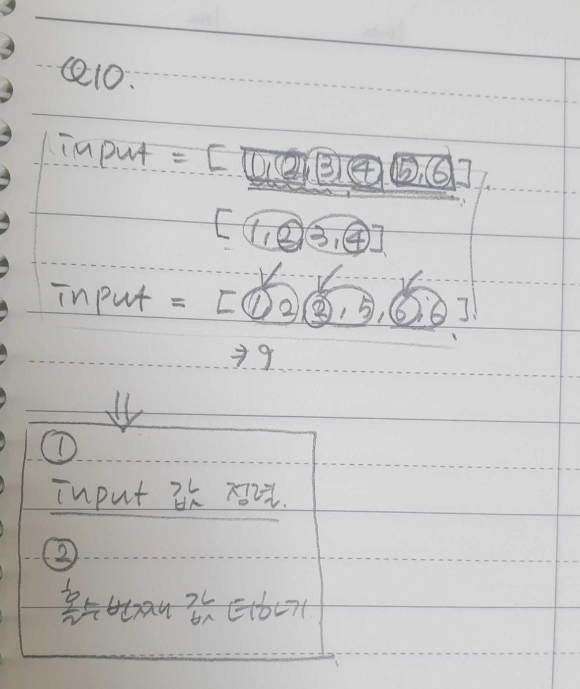 Q10.
input = [ 1, 2, 3, 4, 5, 6 ]
[ 1, 2 3, 4 ]
input = [ 1 2 , 5, 6, 6 ].
→ 9
⇓
①
input 값 정렬.
②
홀수번째 값 더하기